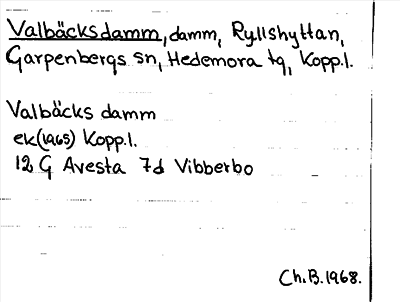 Valbäcksdamm, damm, Ryllshyttan,
Garpenbergs sn, Hedemora tg, Kopp.l.
Valbäcks damm
ek(1965) Kopp.l.
12 G Avesta 7d Vibberbo
Ch.B.1968.